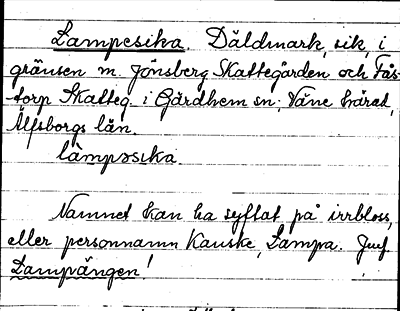 Lampesika. Däldmark, sik, i
gränsen m. Jönsberg Skattegården och Fås-
torp Skatteg. i Gärdhem sn; Väne härad,
Älfsborgs län.
làmpəsıka.
Namnet kan ha syftat på irrbloss,
eller personnamn kanske, Lampa. Jmf.
Lampängen!